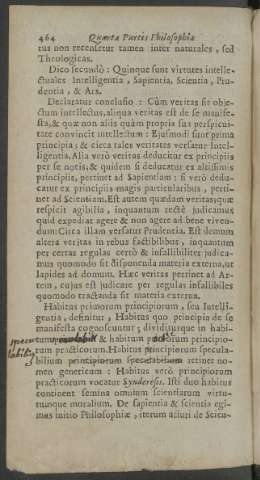 464 Quarta Partis Philosophiæ
tus non recensetur tamen inter naturales, sed
Theologicas.
Dico secundò: Quinque sunt virtutes intelle-
ctuales Intelligentia, Sapientia, Scientia, Pru-
dentia, & Ars.
Declaratur conclusio: Cùm veritas sit obje-
ctum intellectus, aliqua veritas est de se manife-
sta, & quæ non aliis quàm propria sua perspicui-
tate convincit intellectum: Ejusmodi sunt prima
principia; & circa tales veritates versatur Intel-
ligentia. Alia verò veritas deducitur ex principiis
per se notis, & quidem si deducatur ex altissimis
principiis, pertinet ad Sapientiam: si verò dedu-
catur ex principiis magis particularibus, perti-
net ad Scientiam. Est autem quædam veritas, quæ
respicit agibilia, inquantum rectè judicamus
quid expediat agere & non agere ad bene viven-
dum: Circa illam versatur Prudentia. Est demum
altera veritas in rebus factibilibus, inquantum
per certas regulas certò & infallibiliter judica-
mus quomodo sit disponenda materia externa, ut
lapides ad domum. Hæc veritas pertinet ad Ar-
tem, cujus est judicare per regulas infallibiles
quomodo tractanda sit materia externa.
Habitus primorum principiorum, seu Intelli-
gentia, definitur, Habitus quo principia de se
manifesta cognoscuntur; dividiturque in habi-
tum & habitum principiorum
rum practicorum. Habitus principiorum specula-
bilium principiorum speculabilium retinet no-
men genericum: Habitus verò principiorum
practicorum vocatur Synderesis. Isti duo habitus
continent semina omnium scientiarum virtu-
tumque moralium. De sapientia & scientia egi-
mus initio Philosophiæ, iterum acturi de Scien-